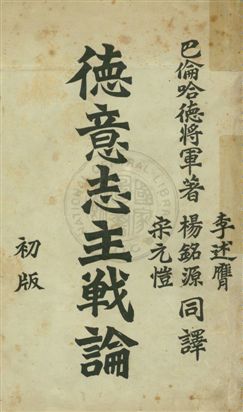 巴倫哈德將軍著
李述膺
楊銘源 同譯
宋元愷
德意志主戰論
初版